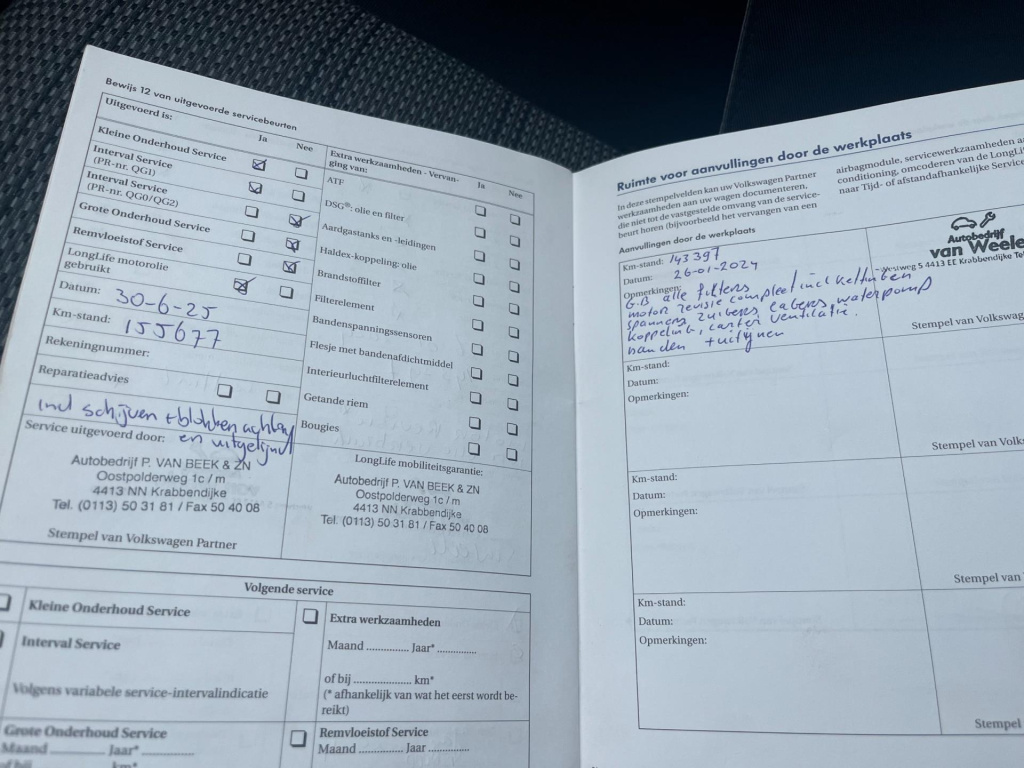 Bewijs 12 van uitgevoerde servicebeurten
Uitgevoerd is:
Ja
Nee
Kleine Onderhoud Service
Interval Service
(PR-nr. QG1)
Interval Service
(PR-nr. QG0/QG2)
Grote Onderhoud Service
Remvloeistof Service
LongLife motorolie
gebruikt
Datum: 30-6-25
Km-stand: 155677
Rekeningnummer:
Reparatieadvies
incl schijven + blokken achter
Service uitgevoerd door: en uitgelijnd
Autobedrijf P. VAN BEEK & ZN
Oostpolderweg 1c / m
4413 NN Krabbendijke
Tel. (0113) 50 31 81 / Fax 50 40 08
Stempel van Volkswagen Partner
Extra werkzaamheden - Vervan-
ging van:
Ja
Nee
ATF
DSG®: olie en filter
Aardgastanks en -leidingen
Haldex-koppeling: olie
Brandstoffilter
Filterelement
Bandenspanningssensoren
Flesje met bandenafdichtmiddel
Interieurluchtfilterelement
Getande riem
Bougies
LongLife mobiliteitsgarantie:
Autobedrijf P. VAN BEEK & ZN
Oostpolderweg 1c / m
4413 NN Krabbendijke
Tel. (0113) 50 31 81 / Fax 50 40 08
Volgende service
Kleine Onderhoud Service
Interval Service
Volgens variabele service-intervalindicatie
Grote Onderhoud Service
Maand ............ Jaar* ............
of bij ............ km*
Extra werkzaamheden
Maand ............ Jaar* ............
of bij ................. km*
(* afhankelijk van wat het eerst wordt be-
reikt)
Remvloeistof Service
Maand ............ Jaar ............
Ruimte voor aanvullingen door de werkplaats
In deze stempelvelden kan uw Volkswagen Partner
werkzaamheden aan uw wagen documenteren,
die niet tot de vastgestelde omvang van de service-
beurt horen (bijvoorbeeld het vervangen van een
airbagmodule, servicewerkzaamheden a
conditioning, omcoderen van de LongLif
naar Tijd- of afstandafhankelijke Service
Aanvullingen door de werkplaats
Km-stand: 143397
Datum: 26-01-2024
Opmerkingen:
G.B alle filters
motor revisie compleet incl kettingen
spanners zuigers lagers, waterpomp
koppeling, carter ventilatie.
banden + uitlijnen
Autobedrijf
van Weele
Westweg 5 4413 EE Krabbendijke Te
Stempel van Volkswag
Km-stand:
Datum:
Opmerkingen:
Stempel van Volks
Km-stand:
Datum:
Opmerkingen:
Stempel van
Km-stand:
Datum:
Opmerkingen:
Stempel